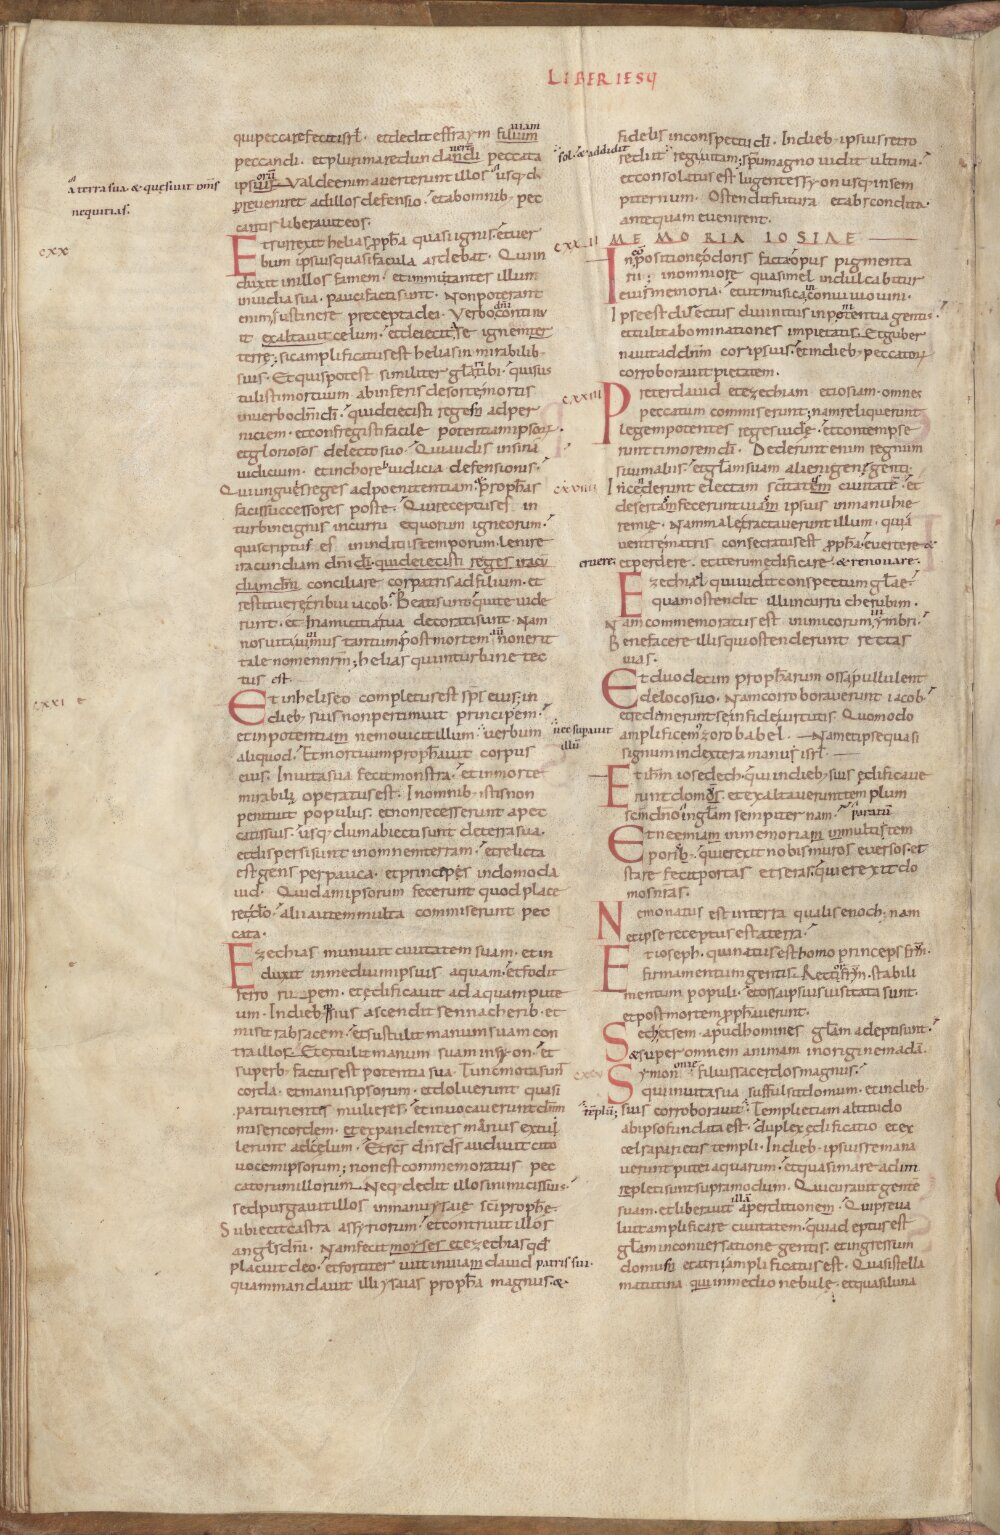 LIBER IESU
qui peccare fecit isrl. et dedit effraym filium
viam
peccandi. et plurima redundandi peccata
ipsius. Valde enim averterunt illos usq; d̄
oru
a terra sua. & quesivit om̄s
nequitias.
preveniret ad illos defensio. et ab omnib. pec
catis liberavit eos.
CXX
Et surrexit helias propha quasi ignis. et ver
bum ipsius quasi facula ardebat. Qui in
duxit in illos famem. et inmitantes illum
invidia sua. pauci facti sunt. Non poterant
enim sustinere precepta dei. Verbo continu
dni
it exaltavit celum. et deiecit se ignem ter
terre; sic amplificatus est helias in mirabilib.
suis. Et quis potest similiter glari tibi. qui sus
tulisti mortuum ab inferis de sorte mortis
in verbo dni di. qui deiecisti reges ad per
niciem. et confregisti facile potentiam ipsor.
et gloriosos de lecto suo. Qui audis in sina
iudicium. et in choreb iudicia defensionis.
Qui ungues reges ad poenitentiam. prophas
facis successores post te. Qui receptus es in
turbine ignis in curru equorum igneorum.
qui scriptus es in inditiis temporum. lenire
iracundiam dni di. qui deiecisti reges iracu
diam dni conciliare cor patris ad filium. et
restituere tribu iacob. Beati sunt qui te vide
runt. et in amicitia tua decorati sunt. Nam
nos vita vivimus tantum post mortem non erit
tale nomen nrm; helias qui in turbine tec
tus est.
CXXI
Et in heliseo completus est sps eius. in
dieb. suis non pertimuit principem.
et in potentiam nemo vicit illum. verbum
nec supavit
illu
aliquod. Et mortuum prophavit corpus
eius. In vita sua fecit monstra. et in morte
mirabilia operatus est. In omnib. istis non
penituit populus. et non recesserunt a pec
catis suis. usq; dum abiecti sunt de terra sua.
et dispersi sunt in omnem terram. et relicta
est gens perpauca. et princeps in domo da
vid. Quidam ipsorum fecerunt quod place
ret do. alii autem multa commiserunt pec
cata.
Ezechias munivit civitatem suam. et in
duxit in medium ipsius aquam. et fodit
ferro rupem. et edificavit ad aquam pute
um. In dieb. ipsius ascendit sennacherib. et
misit rabsacem. et sustulit manum suam con
tra illos. Et extulit manum suam in syon. et
superb. factus est potentia sua. Tunc mota sunt
corda. et manus ipsorum. et doluerunt quasi
parturientes mulieres. et invocaverunt dnm
misericordem. et expandentes manus extul
lerunt ad celum. Et scs dns ds audivit cito
vocem ipsorum; non est commemoratus pec
catorum illorum. Neq; dedit illos inimicis suis.
sed purgavit illos in manu ysaie sci prophe.
Subiecit castra assyriorum. et contrivit illos
angls dni. Nam fecit moyses et ezechias qd
placuit deo. et fortiter ivit in viam david patris sui.
quam mandavit illi ysaias propha magnus. &
fidelis in conspectu di. In dieb. ipsius retro
sol. & addidit
rediit regi vitam; spu magno vidit ultima.
et consolatus est lugentes syon usq; in sem
piternum. Ostendit futura et abscondita
antequam evenirent.
CXXII
MEMORIA IOSIAE
In compositione odoris facta opus pigmenta
rii; in omni ore quasi mel indulcabitur
eius memoria. et ut musica in convivio vini.
Ipse est directus divinitus in potentia gentis.
et tulit abominationes impietatis. Et guber
navit ad dnm cor ipsius. et in dieb. peccator.
corroboravit pietatem.
CXXIII
Preter david et ezechiam et iosiam. omnes
peccatum commiserunt; nam reliquerunt
legem potentes reges iude. et contempse
runt timorem di. Dederunt enim regnum
suum aliis. et glam suam alienigene genti.
CXXIIII
Incederunt electam scitatem civitate. et
desertam fecerunt viam ipsius in manu hie
remie. Nam male tractaverunt illum. qui a
ventre matris consecratus est propha. evertere &
eruere.
et perdere. et iterum edificare. & renovare.
Ezechiel qui vidit conspectum glae
quam ostendit illi in curru cherubim.
Nam commemoratus est inimicorum in ymbri.
Benefacere illis qui ostenderunt rectas
vias.
Et duodecim propharum ossa pullulent
de loco suo. Nam corroboraverunt iacob.
et redimerunt se in fide virtutis. Quomodo
amplificem zorobabel. Nam et ipse quasi
signum in dextera manu isrl.
Et ihm iosedech. qui in dieb. suis edificave
runt domos. et exaltaverunt templum
scm dno in glam sempiternam.
paratu
Et neemiam in memoriam in multis tem
porib. qui erexit nobis muros eversos. et
stare fecit portas et seras. qui erexit do
mos nras.
Nemo natus est in terra qualis enoch; nam
et ipse receptus est a terra.
Et ioseph. qui natus est homo princeps frm.
firmamentum gentis. Rector frm. stabili
mentum populi. et ossa ipsius visitata sunt.
et post mortem prophaverunt.
Seth et sem. apud homines glam adepti sunt.
& super omnem animam in origine mada.
CXXV
Symon onie filius sacerdos magnus.
qui in vita sua suffulsit domum. et in dieb.
suis corroboravit. Templi etiam altitudo
templu;
ab ipso fundata est. duplex edificatio et ex
celsa parietis templi. In dieb. ipsius remana
verunt putei aquarum. et quasi mare adim
repleti sunt supra modum. Qui curavit gente
suam. et liberavit illa a perditionem. Qui preva
luit amplificare civitatem. qui adeptus est
glam in conversatione gentis. et ingressum
domus et atrii amplificatus est. Quasi stella
matutina qui in medio nebule. et quasi luna